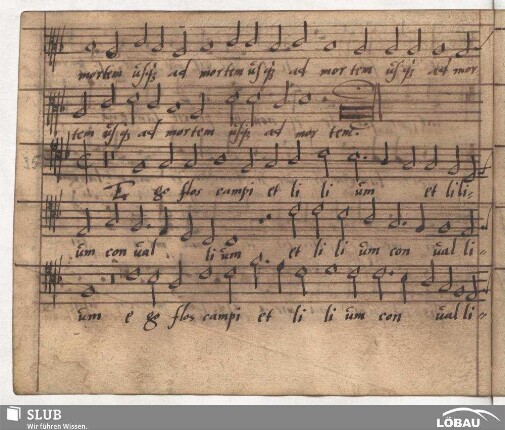 mortem usq; ad mortem usq; ad mor tem usq; ad mor
tem usq; ad mortem usq; ad mor tem.
35
Ego flos campi et li li um et lili-
um con ual li um et li li um con ual li-
um e go flos campi et li li um con ual li-
SLUB
Wir führen Wissen.
LÖBAU